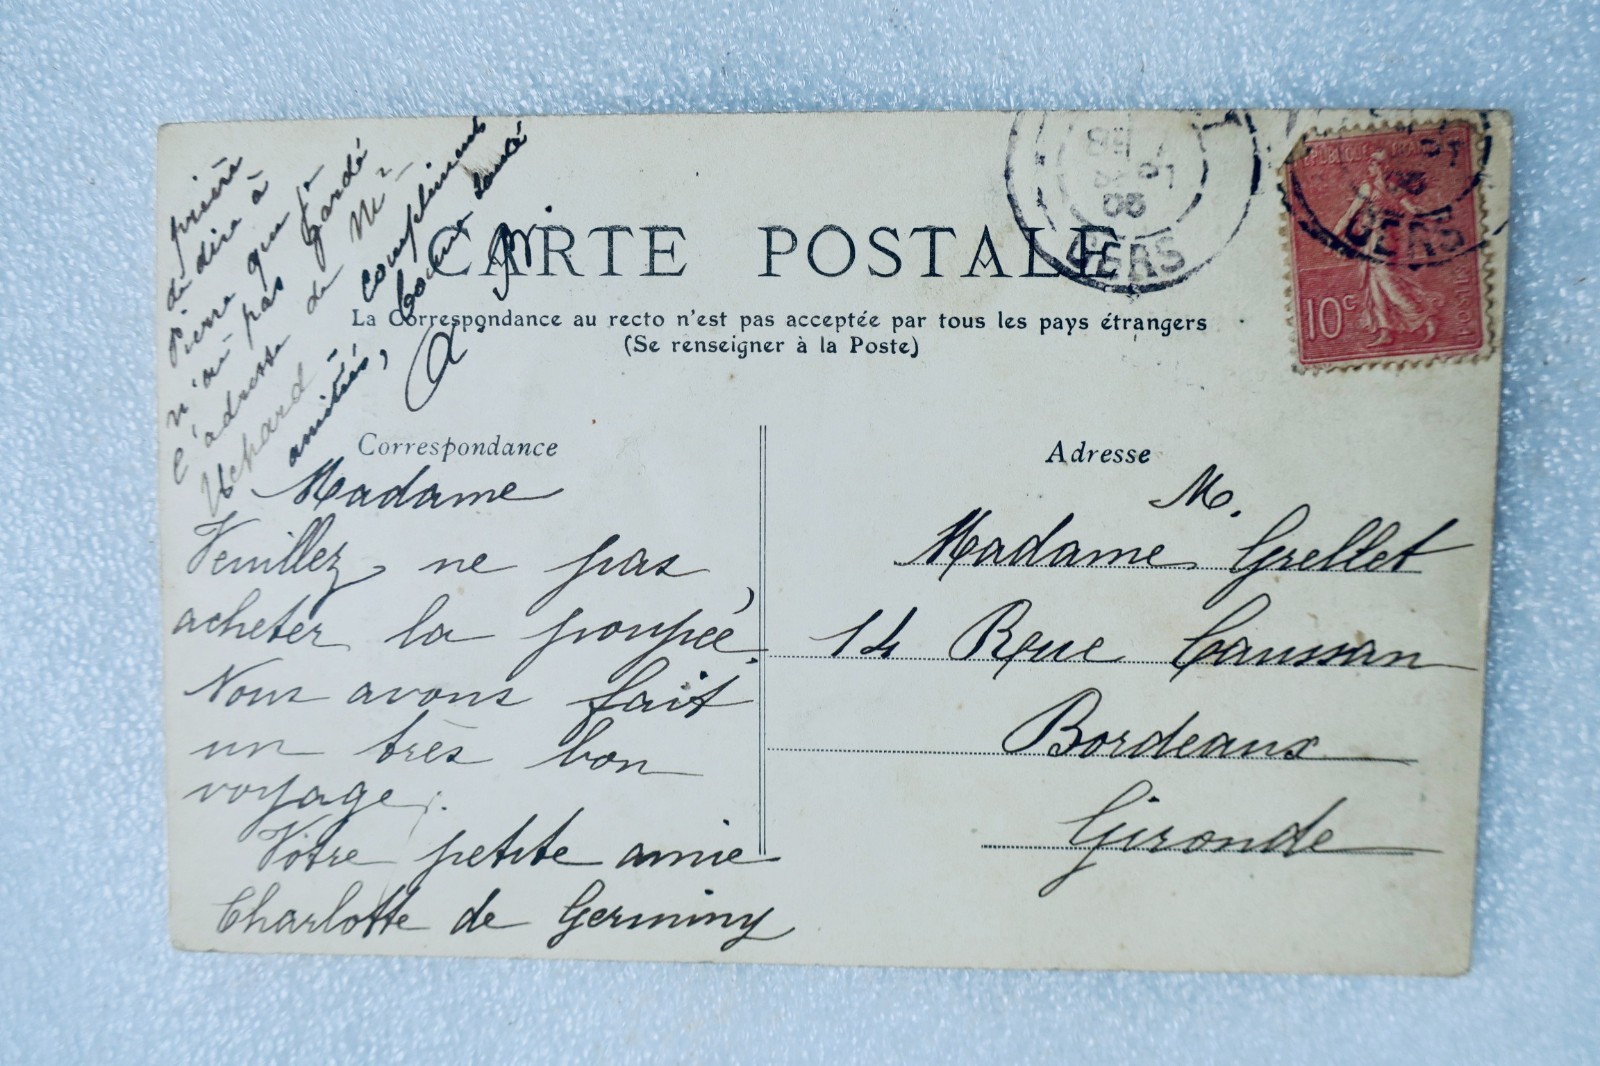 prière
de dire à
Pierre que je
n'ai pas gardé
l'adresse de Mr
Uchard
amitiés, compliments
bonne santé
CARTE POSTALE
La Correspondance au recto n'est pas acceptée par tous les pays étrangers
(Se renseigner à la Poste)
Correspondance
Madame
Veuillez ne pas
acheter la poupée.
Nous avons fait
un très bon
voyage.
Votre petite amie
Charlotte de Germiny
Adresse
M.
Madame Grellet
14 Rue Caussan
Bordeaux
Gironde
GERS
RÉPUBLIQUE FRANÇAISE
10c
POSTES
GERS